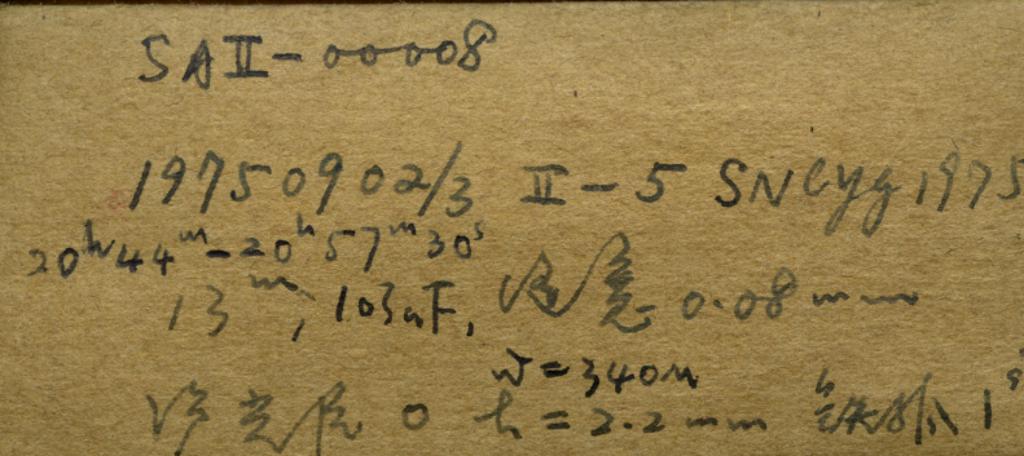 SAII-00008
19750902/3 II-5 SNCyg1975
20h44m-20h57m30s
13m, 103aF, 缝宽 0.08mm
w=340μ
0 t=2.2mm 1s